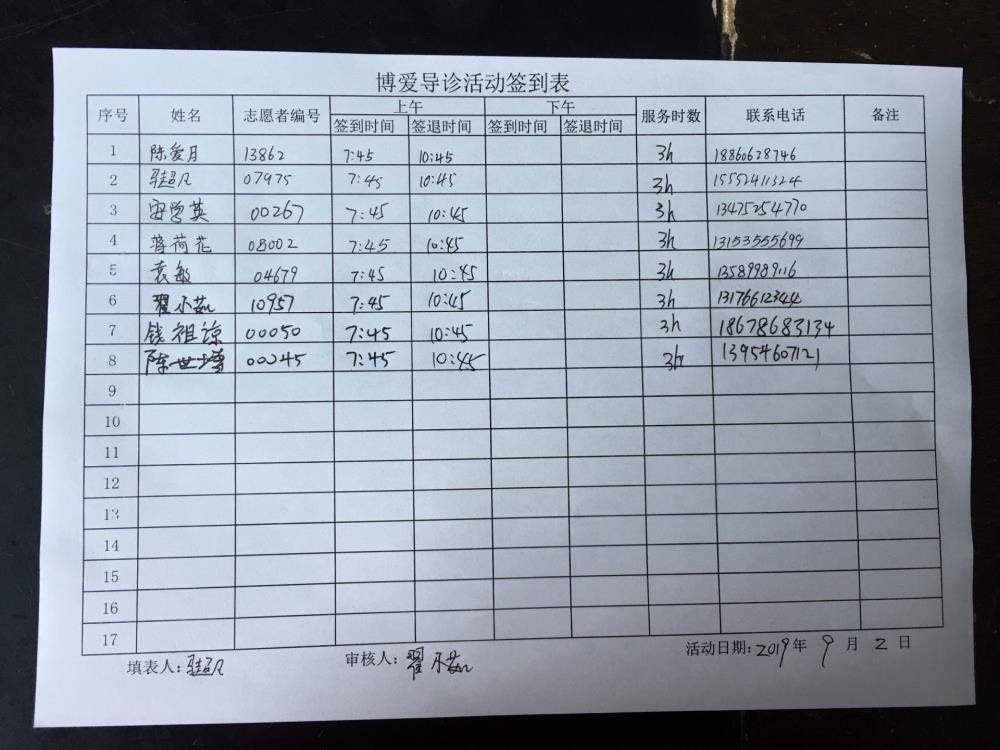 博爱导诊活动签到表
序号 姓名 志愿者编号 上午 下午 服务时数 联系电话 备注
签到时间 签退时间 签到时间 签退时间
1 陈爱月 13862 7:45 10:45 3h 18860628746
2 骇超凡 07975 7:45 10:45 3h 15552411324
3 安学英 00267 7:45 10:45 3h 13475254770
4 蒋荷花 08002 7:45 10:45 3h 13153555699
5 袁敏 04679 7:45 10:45 3h 13589989116
6 翟小茹 10957 7:45 10:45 3h 13176612344
7 钱祖谅 00050 7:45 10:45 3h 18678683134
8 陈世增 00245 7:45 10:45 3h 13954607121
9
10
11
12
13
14
15
16
17
填表人: 审核人:翟小茹 活动日期:2019年 9 月 2 日